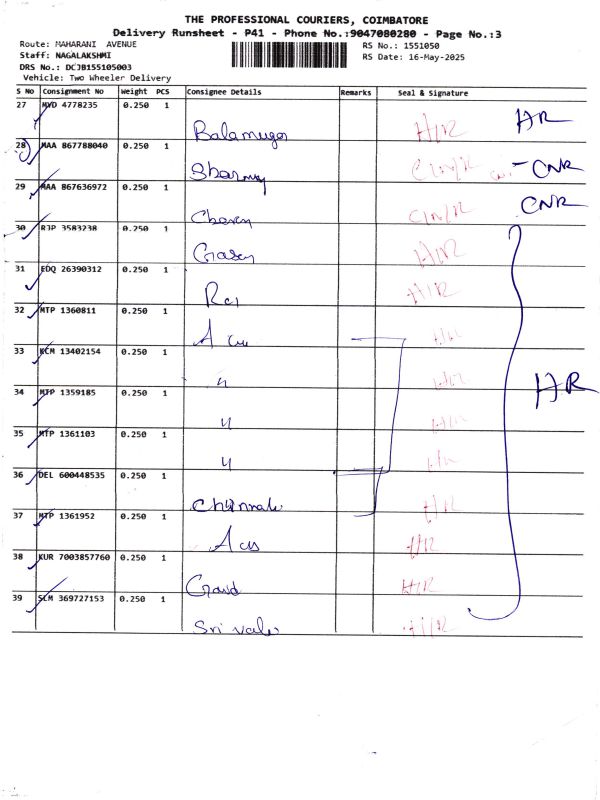 THE PROFESSIONAL COURIERS, COIMBATORE
Delivery Runsheet - P41 - Phone No.:9047080280 - Page No.:3
Route: MAHARANI AVENUE RS No.: 1551050
Staff: NAGALAKSHMI RS Date: 16-May-2025
DRS No.: DCJB155105003
Vehicle: Two Wheeler Delivery
S No Consignment No Weight PCS Consignee Details Remarks Seal & Signature
27 MVD 4778235 0.250 1
Balamugo H/R HR
28 MAA 867788040 0.250 1
CIN/R - CNR
29 MAA 867636972 0.250 1
CIN/R CNR
30 RJP 3583238 0.250 1
H/R
31 EDQ 26390312 0.250 1
H/R
32 MTP 1360811 0.250 1
H/R
33 KCM 13402154 0.250 1
" H/R
34 MTP 1359185 0.250 1
" H/R HR
35 MTP 1361103 0.250 1
" H/R
36 DEL 600448535 0.250 1
H/R
37 MTP 1361952 0.250 1
H/R
38 KUR 7003857760 0.250 1
H/R
39 SLM 369727153 0.250 1
Sri vale H/R